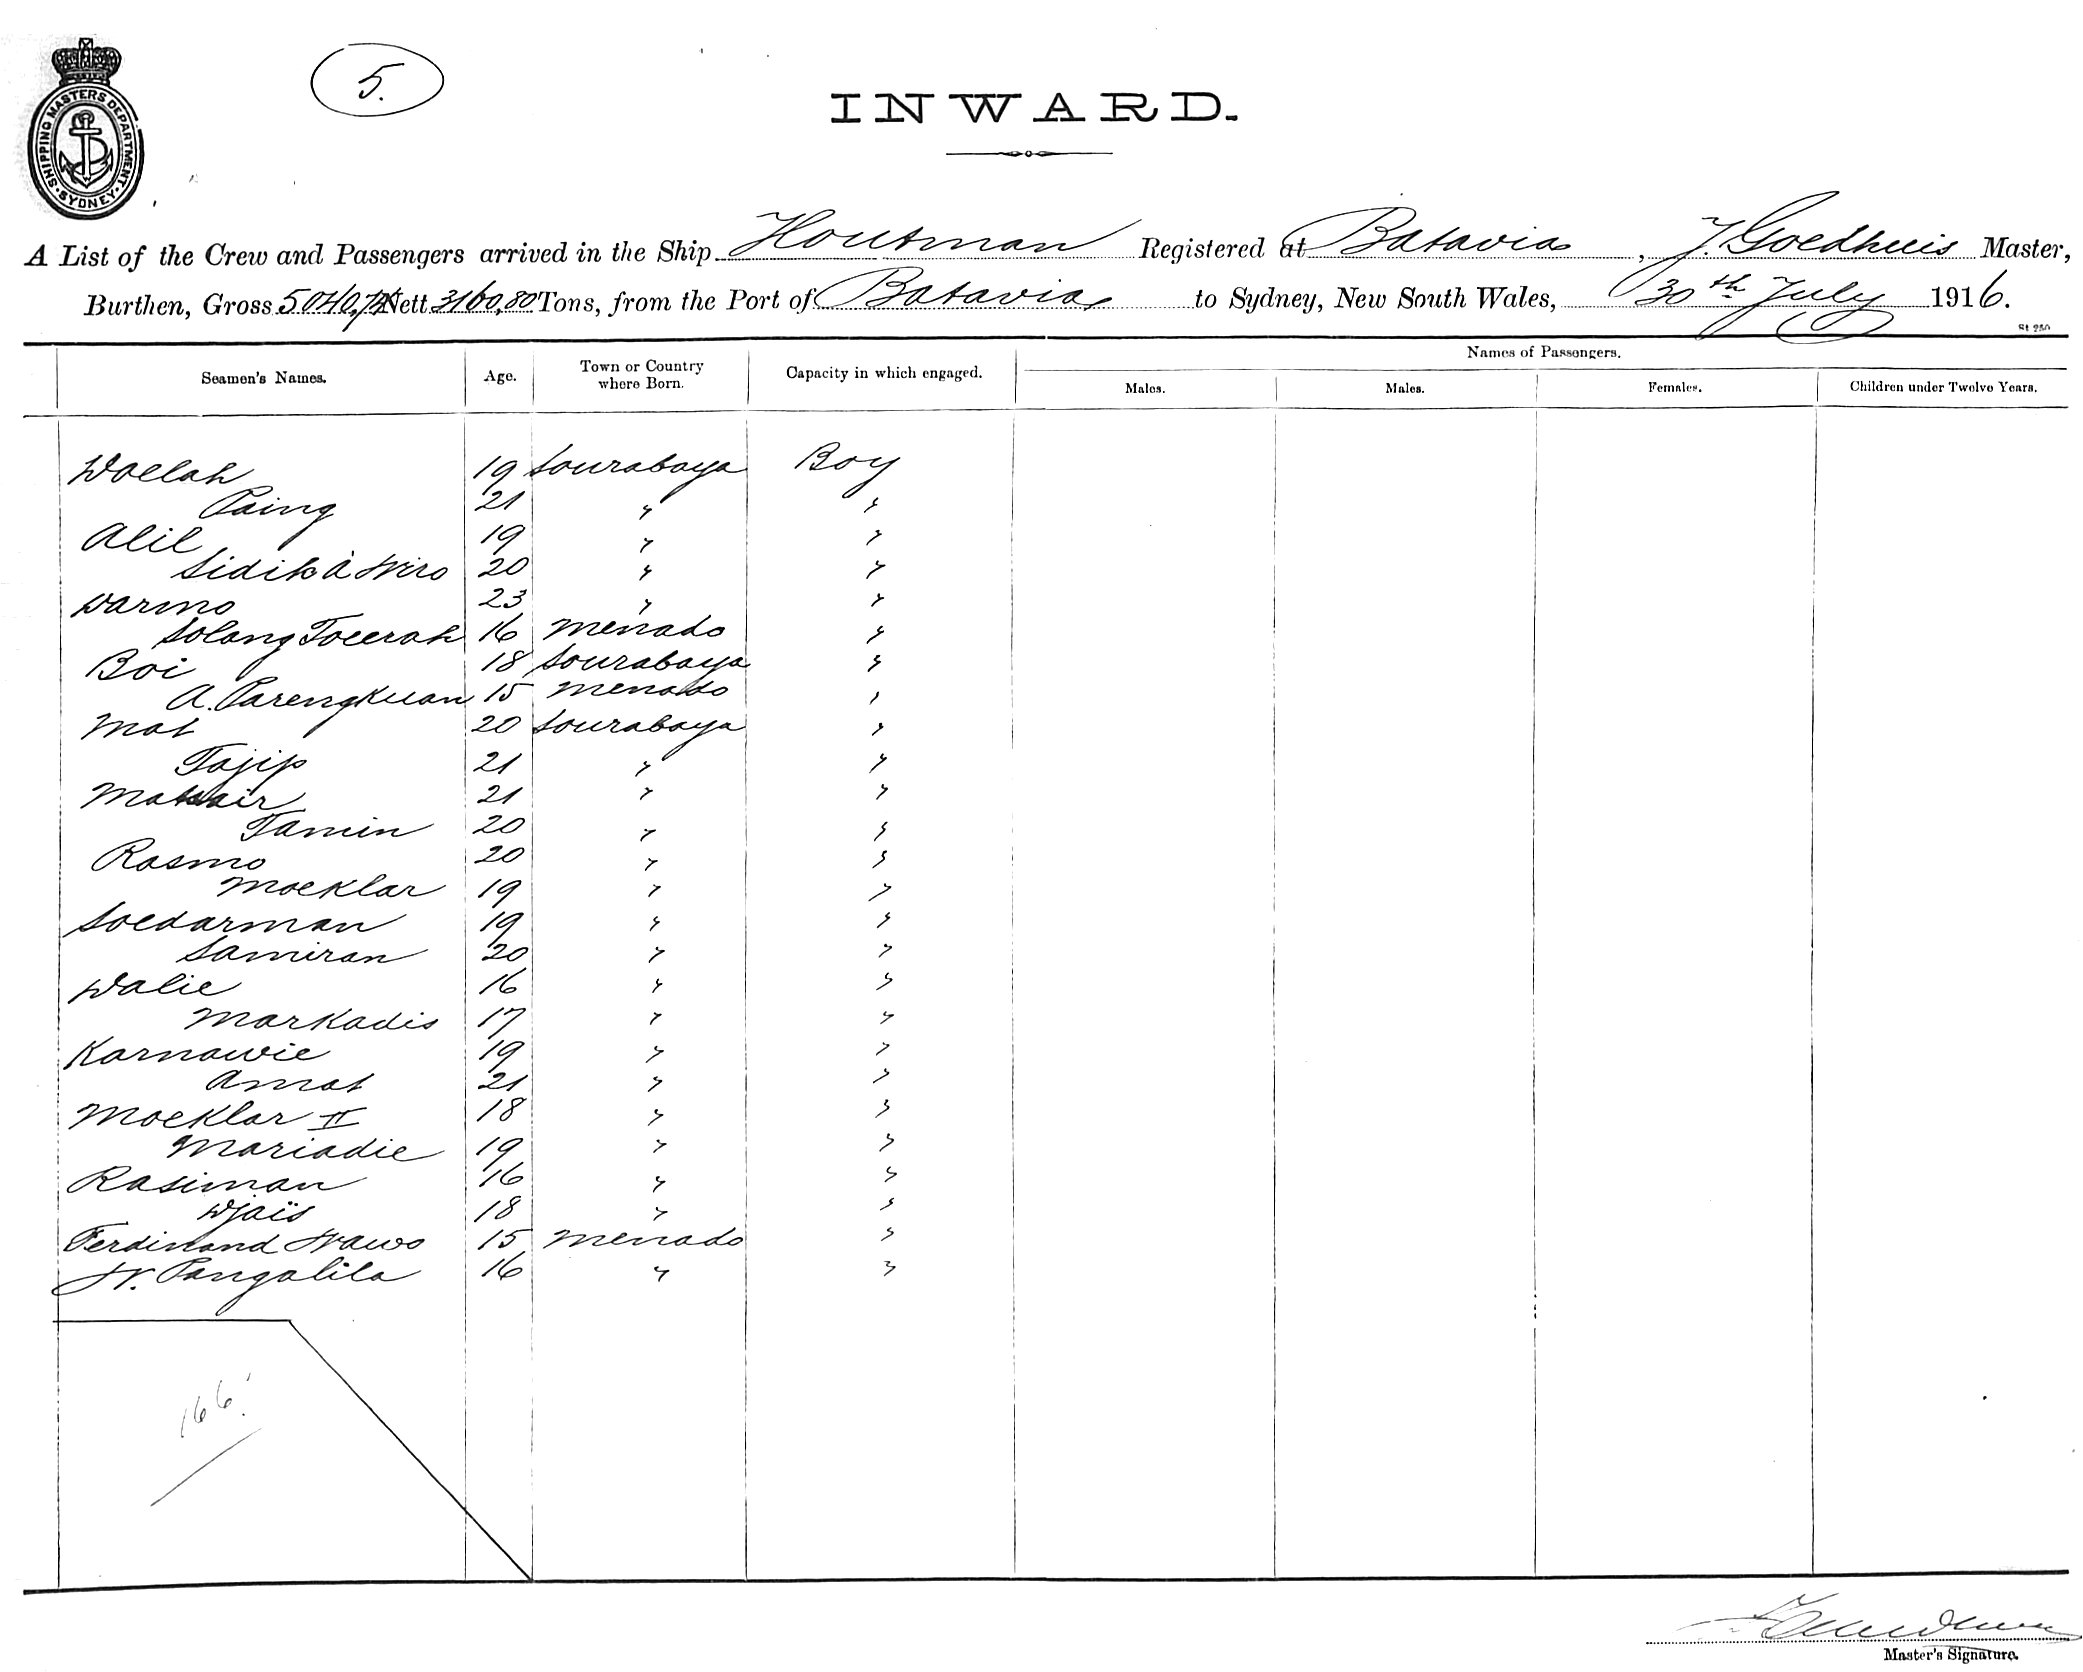 SHIPPING MASTERS DEPARTMENT · SYDNEY ·
5.
INWARD.
A List of the Crew and Passengers arrived in the Ship Houtman Registered at Batavia, J. Goedhuis Master,
Burthen, Gross 5040,74 Nett 3160,80 Tons, from the Port of Batavia to Sydney, New South Wales, 30th July 1916.
St 250
Seamen's Names. Age. Town or Country where Born. Capacity in which engaged. Names of Passengers.
Males. Males. Females. Children under Twelve Years.
Woelah 19 Sourabaya Boy
Paing 21 " "
Alil 19 " "
Sidik à Wiro 20 " "
Darmo 23 " "
Solang Toeerah 16 Menado "
Boi 18 Sourabaya "
A. Parengkuan 15 Menado "
Mat 20 Sourabaya "
Tajip 21 " "
Matsair 21 " "
Tamin 20 " "
Rasmo 20 " "
Moeklar 19 " "
Soedarman 19 " "
Samiran 20 " "
Walie 16 " "
Markadis 17 " "
Karnawie 19 " "
Amat 21 " "
Moeklar II 18 " "
Mariadie 19 " "
Rasiman 16 " "
Djaïs 18 " "
Ferdinand Wawo 15 Menado "
W. Pangalila 16 " "
166
Master's Signature.